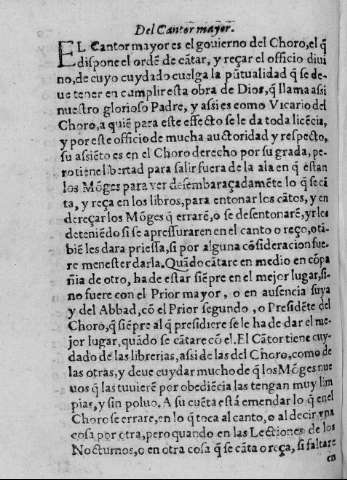 Del Cantor mayor.
EL Cantor mayor es el gouierno del Choro, el q̃
dispone el ordẽ de cãtar, y reçar el officio diui
no, de cuyo cuydado cuelga la pũtualidad q̃ se de-
ue tener en cumplir esta obra de Dios, q̃ llama assi
nuestro glorioso Padre, y assi es como Vicario del
Choro, a quiẽ para este effecto se le da toda licẽcia,
y por este officio de mucha auctoridad y respecto,
su assiẽto es en el Choro derecho por su grada, pe-
ro tiene libertad para salir fuera de la ala en q̃ estan
los Mõges para ver desembaraçadamẽte lo q̃ se cã
ta, y reça en los libros, para entonar los cãtos, y en
dereçar los Mõges q̃ errarẽ, o se desentonarẽ, yr los
deteniẽdo si se apressuraren en el canto o reço, o tã
biẽ les dara priessa, si por alguna cõsideracion fue-
re menester darla. Quãdo cãtare en medio en cõpa
ñia de otro, ha de estar siẽpre en el mejor lugar, si-
no fuere con el Prior mayor, o en ausencia suya
y del Abbad, cõ el Prior segundo, o Presidẽte del
Choro, q̃ siẽpre al q̃ presidiere se le ha de dar el me-
jor lugar, quãdo se cãtare cõ el. El Cãtor tiene cuy-
dado de las librerias, assi de las del Choro, como de
las otras, y deue cuydar mucho de q̃ los Mõges nue
uos q̃ las tuuierẽ por obediẽcia las tengan muy lim
pias, y sin poluo. A su cuẽta està emendar lo q̃ en el
Choro se errare, en lo q̃ toca al canto, o al dezir vna
cosa por otra, pero quando en las Lectiones de los
Nocturnos, o en otra cosa q̃ se cãta o reça, si faltare
en